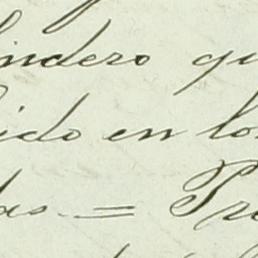 lindero qu
ido en lo
das = Pr